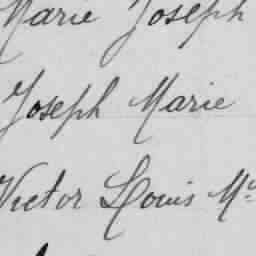 Marie Joseph
Joseph Marie
Victor Louis Mie